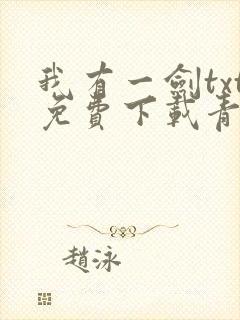 我有一劍txt
免費下載青
趙泳